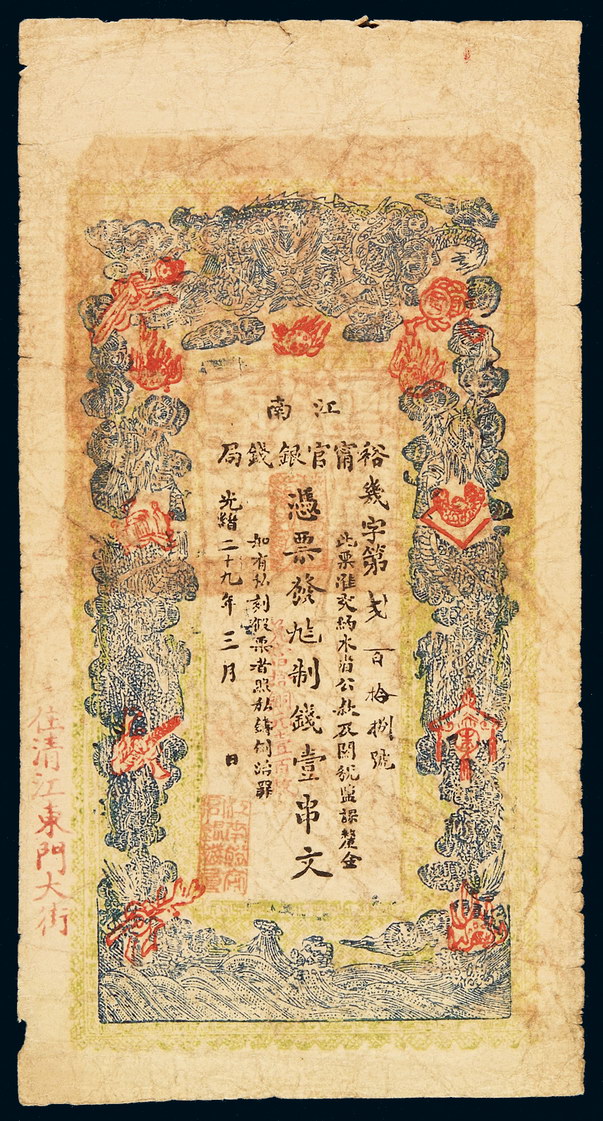 江南
裕甯官銀錢局
幾字第弍百拾捌號
此票准交納本省公款及關稅鹽課釐金
憑票發足制錢壹串文
如有私刻假票者照私鑄例治罪
光緒二十九年三月 日
江南裕甯官銀錢局
住清江東門大街